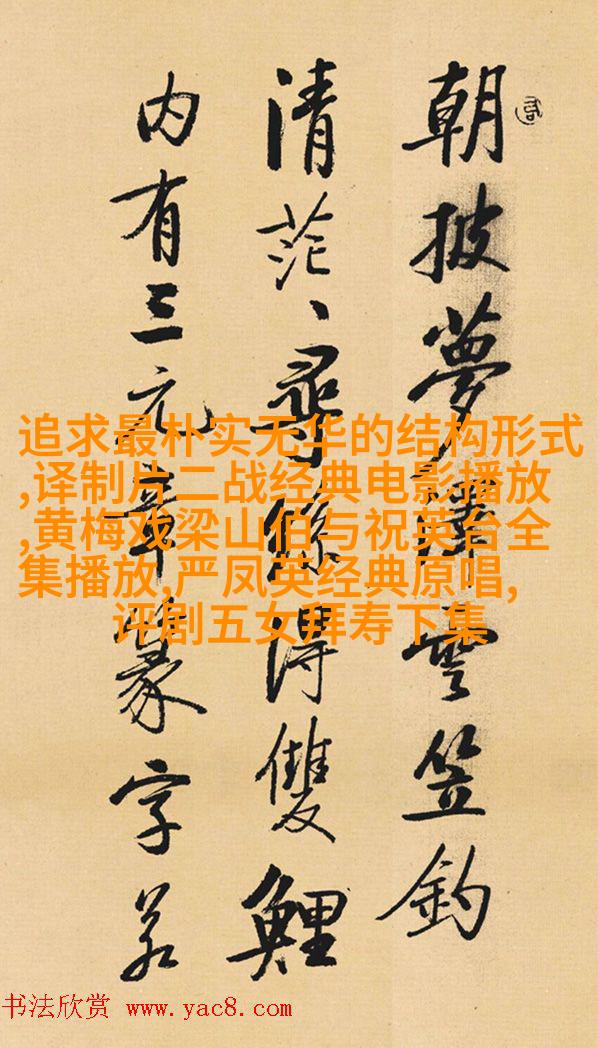 朝披夢澤雲笠釣
清茫、尋絲得雙鯉
内有三元章篆字若
追求最朴实无华的结构形式
,译制片二战经典电影播放
,黄梅戏梁山伯与祝英台全
集播放,严凤英经典原唱,
评剧五女拜寿下集
书法欣赏 www.yac8.com